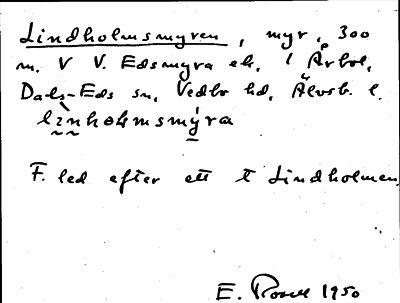 Lindholmsmyren, myr, 300
m. V V. Edsmyra eh, i Årbol,
Dals-Eds sn, Vedbo hd, Älvsb. l.
linholmsmýra
F. led efter ett t Lindholmen.
E. Rosell 1950